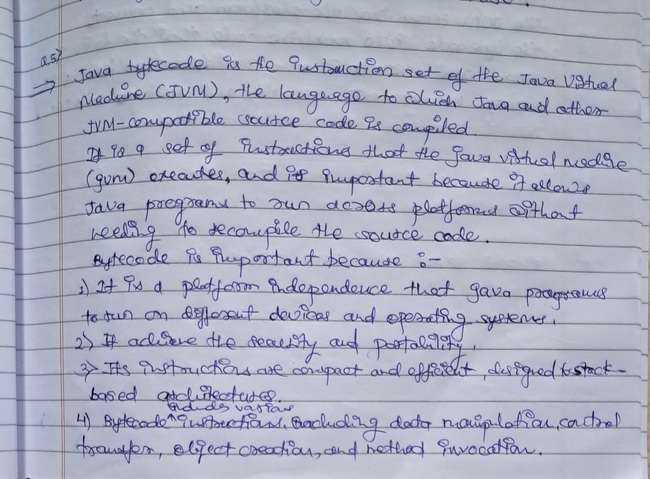 Q.5)
⇒ Java bytecode is the instruction set of the Java Virtual
Machine (JVM), the language to which Java and other
JVM-compatible source code is compiled.
It is a set of instructions that the java virtual machine
(jvm) executes, and is important because it allows
Java programs to run across platforms without
needing to recompile the source code.
Bytecode is important because :-
1) It is a platform independence that java programs
to run on different devices and operating systems.
2) It achieve the security and portability.
3) Its instructions are compact and efficient, designed to stack-
based architectures.
includes various
4) Bytecode ^ instructions, including data manipulation, control
transfer, object creation, and method invocation.